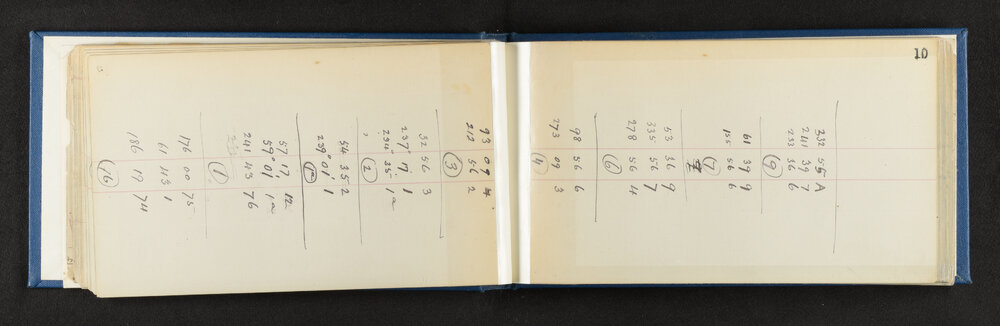 10
332 55 A
241 39 7
233 36 6
(9)
61 39 9
155 56 6
(7)
53 36 9
335 56 7
278 56 4
(6)
98 56 6
273 09 3
(4)
93 09 4
212 56 2
(3)
32 56 3
237° 17 1
35 1a
(2)
54 35 2
239° 01' 1
57 17 12
59° 01' 1a
241 43 76
(1)
176 00 75
61 43 1
186 17 74
(76)